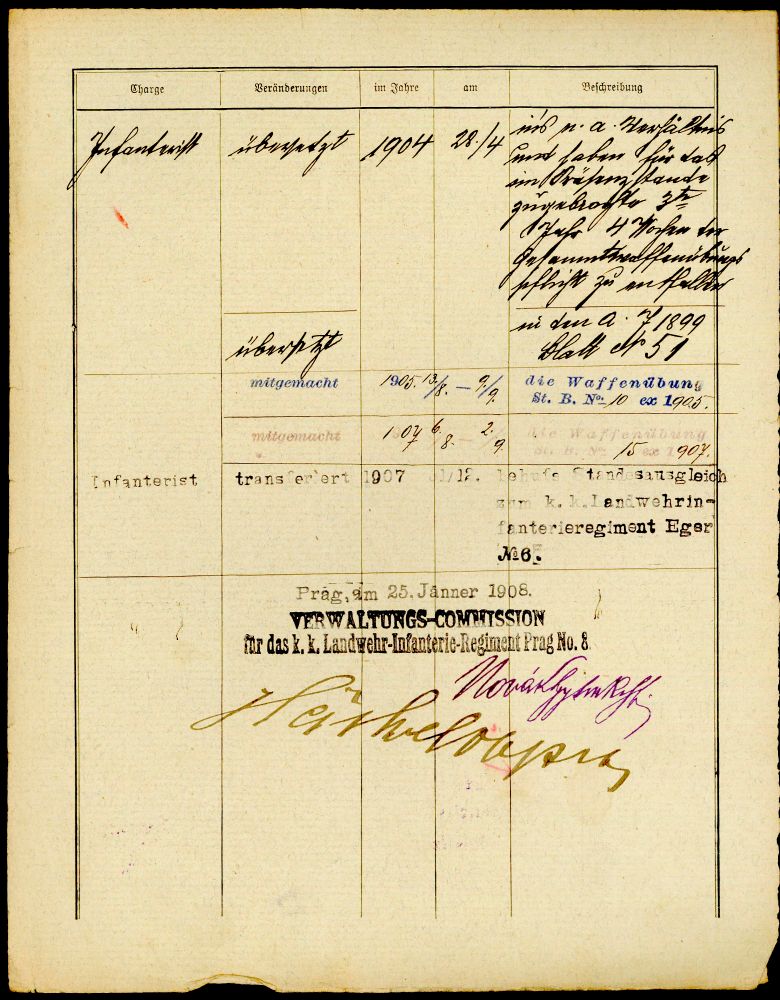 Charge Veränderungen im Jahre am Beschreibung
Infanterist übersetzt 1904 28./4 ins n. a. Verhältnis
und haben für das
im Präsenzstande
zugebrachte 3te
Jahr 4 Wochen der
Gesammtwaffenübungs
pflicht zu entfallen
übersetzt in den A. 1899
Blatt No 51
mitgemacht 1905. 13./8. – 9./9. die Waffenübung
St. B. No. 10 ex 1905.
mitgemacht 1907 6./8. – 2./9. die Waffenübung
St. B. No. 15 ex 1907.
Infanterist transferiert 1907 31/12. behufs Standesausgleich
zum k. k. Landwehrin-
fanterieregiment Eger
№ 6.
Prag, am 25. Jänner 1908.
VERWALTUNGS-COMMISSION
für das k. k. Landwehr-Infanterie-Regiment Prag No. 8.
Novák